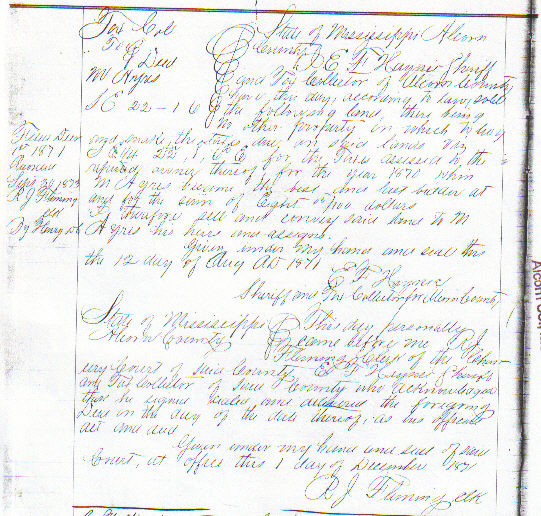 Tax Col
To
Deed
M Ayres
State of Mississippi Alcorn
County
I E F Haynie Sheriff
and Tax Collector of Alcorn County
have this day, according to law, sold
the following land, there being
no other property on which to levy
and make the taxes due, on said lands viz
for the Taxes assessed to the
reputed owner thereof, for the year 1870 when
M Ayres became the best and last bidder at
and for the sum of Eight /100 dollars
I therefore sell and convey said land to M
Ayres his heirs and assigns
Given under my hand and seal this
the 12 day of Aug AD 1871
E F Haynie
Sheriff and Tax Collector for Alcorn County
Filed Decm
1st 1871
Sept 1873
R J Fleming
clk
State of Mississippi
Alcorn County
This day personally
came before me R J
Fleming Clerk of the
Court of said County, E F Haynie Sheriff
and Tax Collector of said County who acknowledged
that he signed sealed and delivered the foregoing
Deed on the day of the date thereof, as his official
act and deed
Given under my hand and seal of said
Court, at office this 1 day of December 1871
R J Fleming clk
Alcorn Co